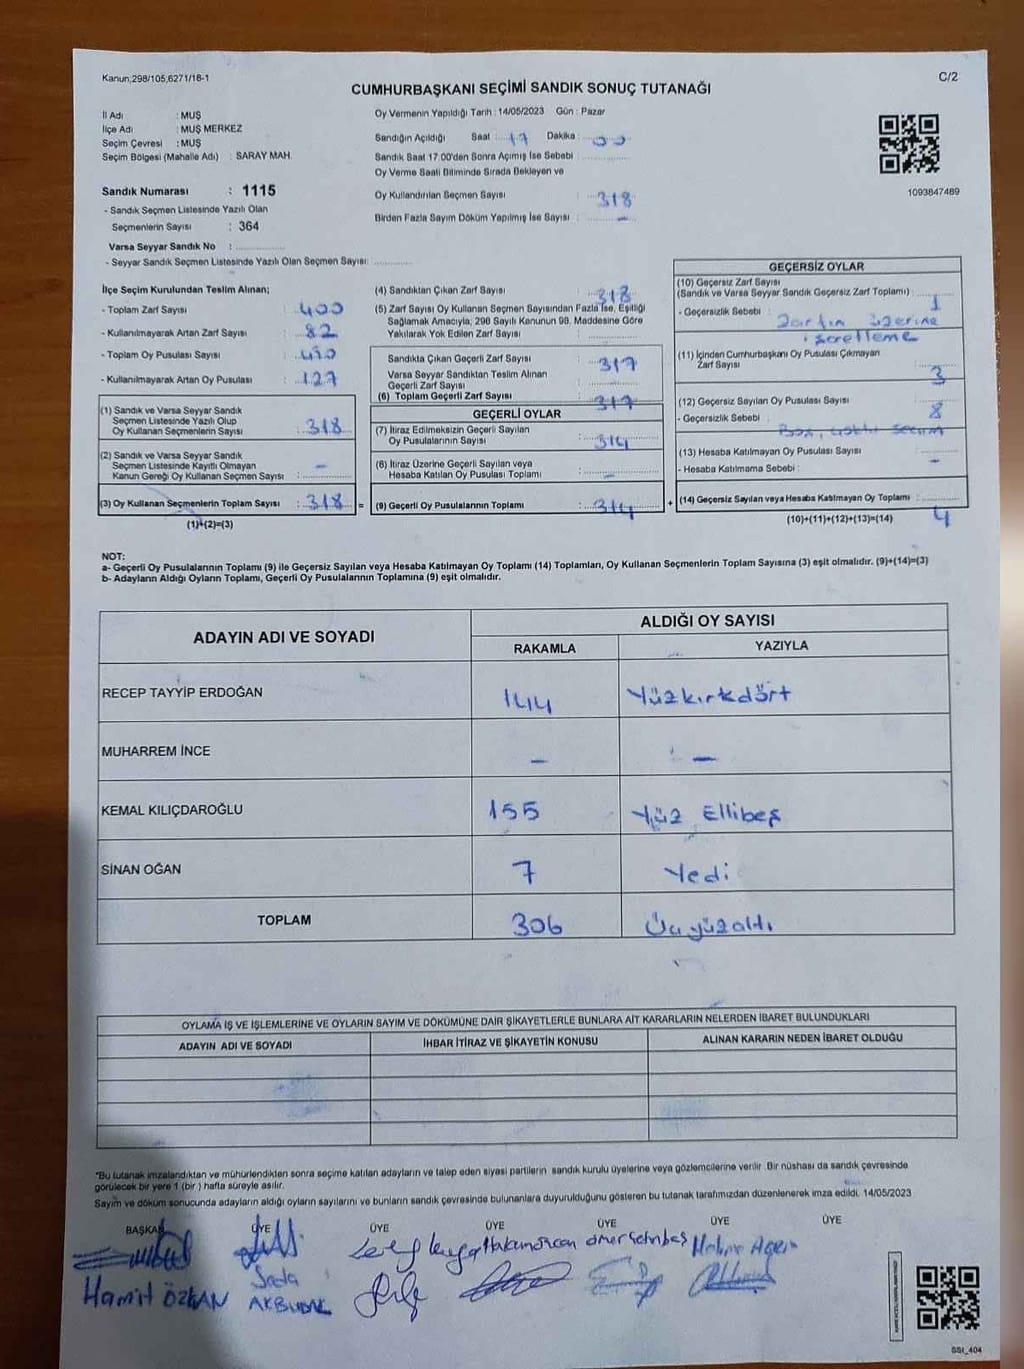 Kanun;298/105,6271/18-1
C/2
CUMHURBAŞKANI SEÇİMİ SANDIK SONUÇ TUTANAĞI
İl Adı : MUŞ
İlçe Adı : MUŞ MERKEZ
Seçim Çevresi : MUŞ
Seçim Bölgesi (Mahalle Adı) : SARAY MAH.
Sandık Numarası : 1115
- Sandık Seçmen Listesinde Yazılı Olan
Seçmenlerin Sayısı : 364
Varsa Seyyar Sandık No :
- Seyyar Sandık Seçmen Listesinde Yazılı Olan Seçmen Sayısı:
Oy Vermenin Yapıldığı Tarih : 14/05/2023 Gün : Pazar
Sandığın Açıldığı Saat : 17 Dakika : 00
Sandık Saat 17.00'den Sonra Açımış İse Sebebi
Oy Verme Saati Bitiminde Sırada Bekleyen ve
Oy Kullandırılan Seçmen Sayısı : 318
Birden Fazla Sayım Döküm Yapılmış İse Sayısı : –
1093847489
İlçe Seçim Kurulundan Teslim Alınan;
- Toplam Zarf Sayısı : 400
- Kullanılmayarak Artan Zarf Sayısı : 82
- Toplam Oy Pusulası Sayısı :
- Kullanılmayarak Artan Oy Pusulası : 127
(1) Sandık ve Varsa Seyyar Sandık
Seçmen Listesinde Yazılı Olup
Oy Kullanan Seçmenlerin Sayısı : 318
(2) Sandık ve Varsa Seyyar Sandık
Seçmen Listesinde Kayıtlı Olmayan
Kanun Gereği Oy Kullanan Seçmen Sayısı : –
(3) Oy Kullanan Seçmenlerin Toplam Sayısı : 318 =
(1)+(2)=(3)
(4) Sandıktan Çıkan Zarf Sayısı : 318
(5) Zarf Sayısı Oy Kullanan Seçmen Sayısından Fazla İse, Eşitliği
Sağlamak Amacıyla; 298 Sayılı Kanunun 98. Maddesine Göre
Yakılarak Yok Edilen Zarf Sayısı
Sandıkta Çıkan Geçerli Zarf Sayısı : 317
Varsa Seyyar Sandıktan Teslim Alınan
Geçerli Zarf Sayısı
(6) Toplam Geçerli Zarf Sayısı : 317
GEÇERLİ OYLAR
(7) İtiraz Edilmeksizin Geçerli Sayılan
Oy Pusulalarının Sayısı : 314
(8) İtiraz Üzerine Geçerli Sayılan veya
Hesaba Katılan Oy Pusulası Toplamı : –
(9) Geçerli Oy Pusulalarının Toplamı : 314 +
GEÇERSİZ OYLAR
(10) Geçersiz Zarf Sayısı
(Sandık ve Varsa Seyyar Sandık Geçersiz Zarf Toplamı) : 1
- Geçersizlik Sebebi : Zarfın üzerine
işaretleme
(11) İçinden Cumhurbaşkanı Oy Pusulası Çıkmayan
Zarf Sayısı : 3
(12) Geçersiz Sayılan Oy Pusulası Sayısı : 8
- Geçersizlik Sebebi :
(13) Hesaba Katılmayan Oy Pusulası Sayısı : –
- Hesaba Katılmama Sebebi :
(14) Geçersiz Sayılan veya Hesaba Katılmayan Oy Toplamı : 4
(10)+(11)+(12)+(13)=(14)
NOT:
a- Geçerli Oy Pusulalarının Toplamı (9) ile Geçersiz Sayılan veya Hesaba Katılmayan Oy Toplamı (14) Toplamları, Oy Kullanan Seçmenlerin Toplam Sayısına (3) eşit olmalıdır. (9)+(14)=(3)
b- Adayların Aldığı Oyların Toplamı, Geçerli Oy Pusulalarının Toplamına (9) eşit olmalıdır.
ADAYIN ADI VE SOYADI ALDIĞI OY SAYISI
RAKAMLA YAZIYLA
RECEP TAYYİP ERDOĞAN 144 Yüzkırkdört
MUHARREM İNCE – –
KEMAL KILIÇDAROĞLU 155 Yüz Ellibeş
SİNAN OĞAN 7 Yedi
TOPLAM 306 Üçyüzaltı
OYLAMA İŞ VE İŞLEMLERİNE VE OYLARIN SAYIM VE DÖKÜMÜNE DAİR ŞİKAYETLERLE BUNLARA AİT KARARLARIN NELERDEN İBARET BULUNDUKLARI
ADAYIN ADI VE SOYADI İHBAR İTİRAZ VE ŞİKAYETİN KONUSU ALINAN KARARIN NEDEN İBARET OLDUĞU
"Bu tutanak imzalandıktan ve mühürlendikten sonra seçime katılan adayların ve talep eden siyasi partilerin sandık kurulu üyelerine veya gözlemcilerine verilir. Bir nüshası da sandık çevresinde
görülecek bir yere 1 (bir) hafta süreyle asılır.
Sayım ve döküm sonucunda adayların aldığı oyların sayılarını ve bunların sandık çevresinde bulunanlara duyurulduğunu gösteren bu tutanak tarafımızdan düzenlenerek imza edildi. 14/05/2023
BAŞKAN ÜYE ÜYE ÜYE ÜYE ÜYE ÜYE
Hamit ÖZKAN
SSI_404